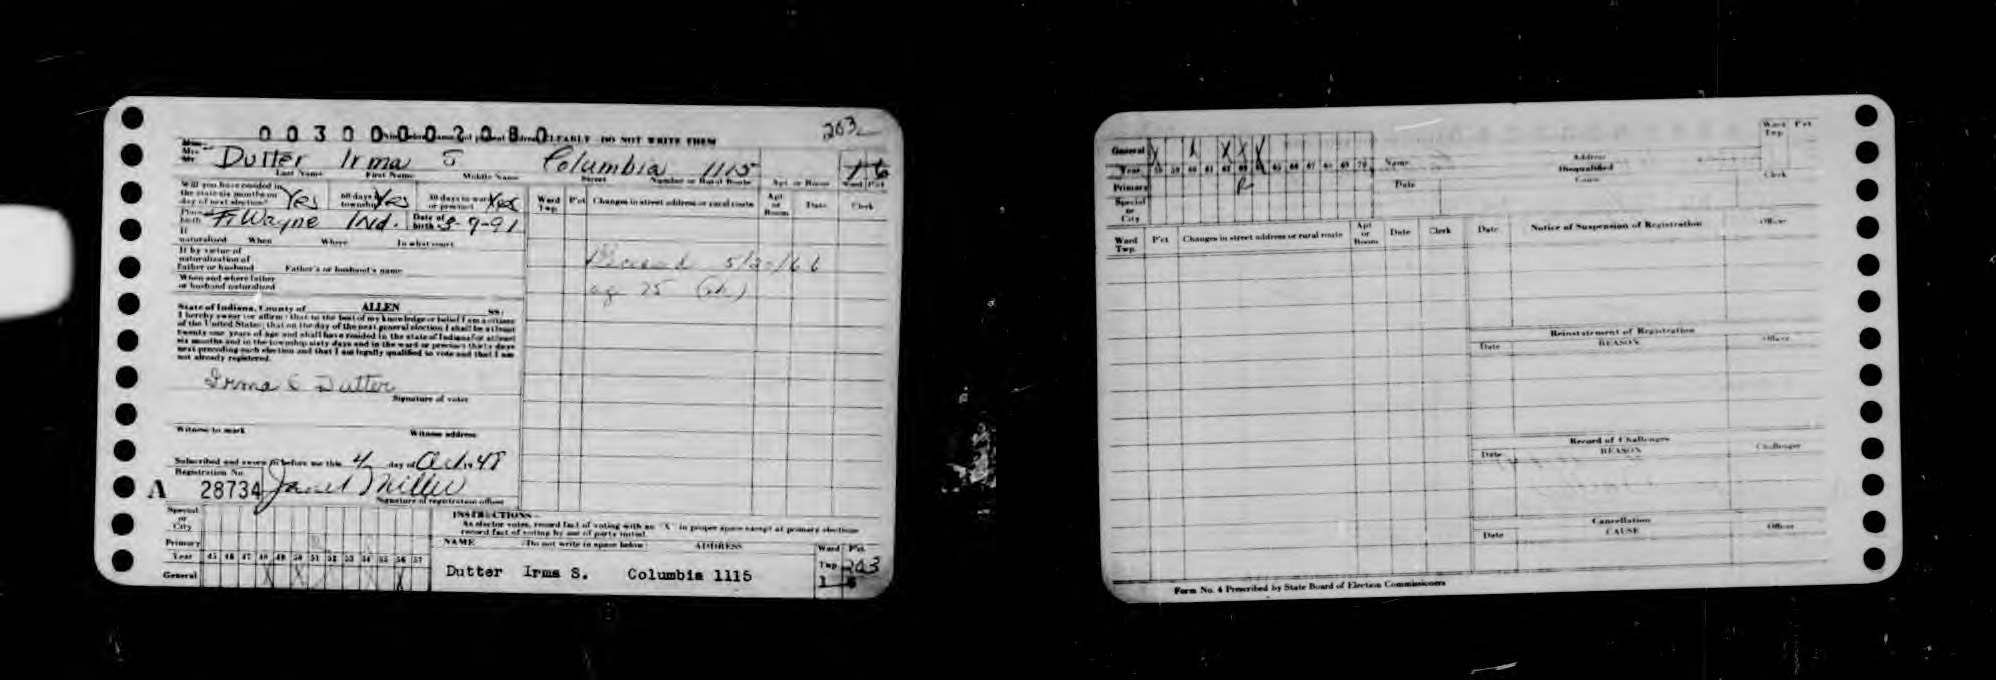 0 0 3 0 0 0 0 2 0 8 0 CLEARLY DO NOT WRITE THEM
203
Dutter Irma Columbia 1115 1 6
Last Name First Name Middle Name Street Number or Rural Route Apt or Room Ward Pct
Will you have resided in the state six months on day of next election? Yes 60 days in township Yes 30 days in ward or precinct Yes
Ward Twp. P'ct Changes in street address or rural route Apt or Room Date Clerk
Place of birth Ft Wayne Ind. Date of birth 3-9-91
If naturalized When Where In what court
If by virtue of naturalization of Father or husband Father's or husband's name
When and where father or husband naturalized
Deceased 5/2-/66
age 75
State of Indiana, County of ALLEN SS:
I hereby swear (or affirm) that to the best of my knowledge or belief I am a citizen
of the United States; that on the day of the next general election I shall be at least
twenty one years of age and shall have resided in the state of Indiana for at least
six months and in the township sixty days and in the ward or precinct thirty days
next preceding such election and that I am legally qualified to vote and that I am
not already registered.
Irma Dutter
Signature of voter
Witness to mark Witness address
Subscribed and sworn to before me this 4 day of Oct 1948
Registration No.
A 28734 Janet Miller
Signature of registration officer
INSTRUCTIONS-
As elector votes, record fact of voting with an "X" in proper space except at primary elections
record fact of voting by use of party initial.
Special or City
Primary
Year 45 46 47 48 49 50 51 52 53 54 55 56 57
General X X X X
NAME (Do not write in space below) ADDRESS Ward Twp P'ct
Dutter Irma S. Columbia 1115 203
1 6
General X X X X X
Year 58 59 60 61 62 63 64 65 66 67 68 69 70
Primary R
Special or City
Name Address Ward Twp P'ct
Disqualified
Date Cause Clerk
Ward Twp. P'ct Changes in street address or rural route Apt or Room Date Clerk
Date Notice of Suspension of Registration Officer
Reinstatement of Registration
Date REASON Officer
Record of Challenges
Date REASON Challenger
Cancellation
Date CAUSE Officer
Form No. 4 Prescribed by State Board of Election Commissioners